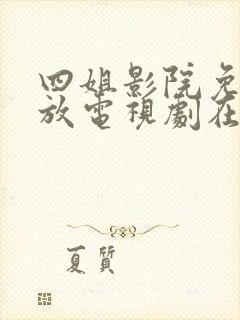 四姐影院免
放電視劇在
夏質